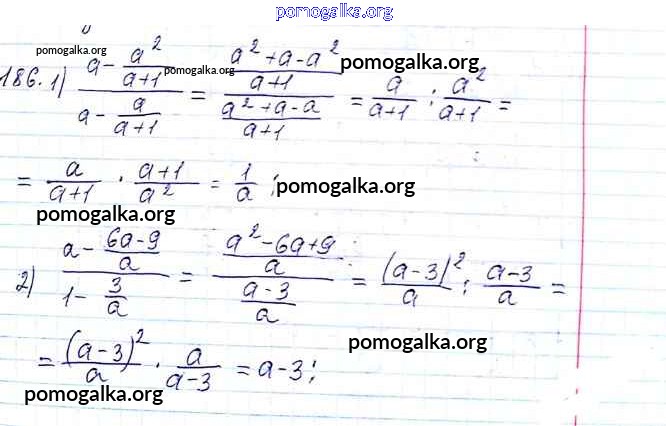 pomogalka.org
186. 1) (a - a²/(a+1)) / (a - a/(a+1)) = ((a²+a-a²)/(a+1)) / ((a²+a-a)/(a+1)) = a/(a+1) : a²/(a+1) =
pomogalka.org pomogalka.org pomogalka.org
= a/(a+1) · (a+1)/a² = 1/a; pomogalka.org
pomogalka.org
2) (a - (6a-9)/a) / (1 - 3/a) = ((a²-6a+9)/a) / ((a-3)/a) = (a-3)²/a : (a-3)/a =
= (a-3)²/a · a/(a-3) = a-3;
pomogalka.org
pomogalka.org